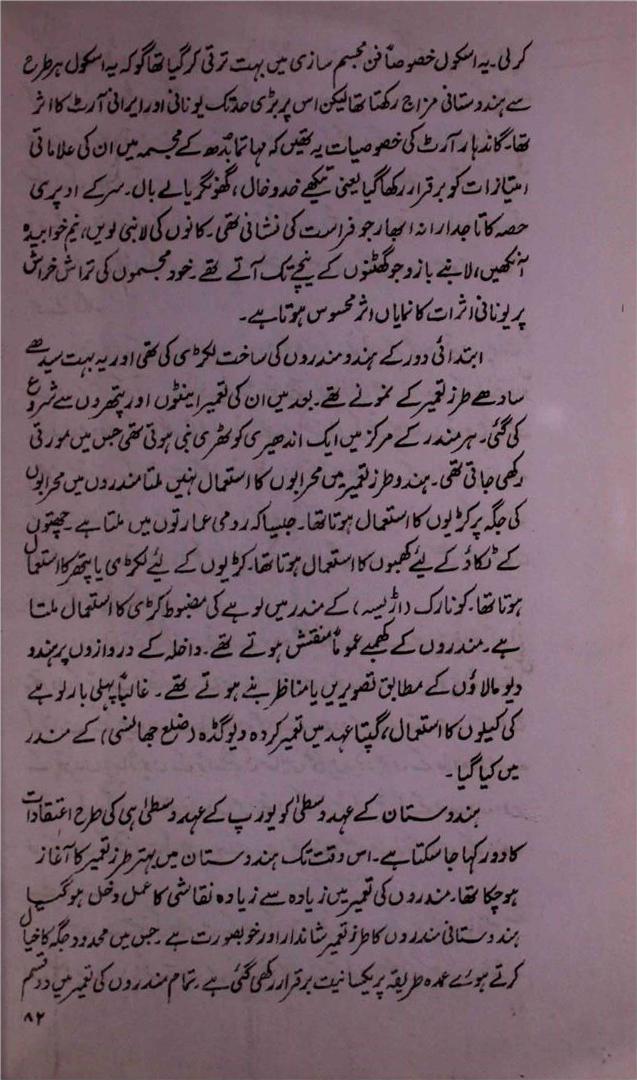 کرلی۔ یہ اسکول خصوصاً فن مجسم سازی میں بہت ترقی کرگیا تھا گو کہ یہ اسکول ہر طرح
سے ہندوستانی مزاج رکھتا تھا لیکن اس پر بڑی حد تک یونانی اور ایرانی آرٹ کا اثر
تھا۔ گاندہار آرٹ کی خصوصیات یہ تھیں کہ مہاتما بدھ کے مجسمہ میں ان کی علاماتی
امتیازات کو برقرار رکھا گیا یعنی تیکھے خدوخال، گھونگریالے بال۔ سر کے اوپری
حصہ کا تاجدارانہ ابھار جو فراست کی نشانی تھی۔ کانوں کی لانبی لویں، نیم خوابیدہ
آنکھیں، لانبے بازو جو گھٹنوں کے نیچے تک آتے تھے۔ خود مجسموں کی تراش خراش
پر یونانی اثرات کا نمایاں اثر محسوس ہوتا ہے۔
ابتدائی دور کے ہندو مندروں کی ساخت لکڑی کی تھی اور یہ بہت سیدھے
سادھے طرز تعمیر کے نمونے تھے۔ بعد میں ان کی تعمیر اینٹوں اور پتھروں سے شروع
کی گئی۔ ہر مندر کے مرکز میں ایک اندھیری کوٹھری بنی ہوتی تھی جس میں مورتی
رکھی جاتی تھی۔ ہندو طرز تعمیر میں محرابوں کا استعمال نہیں ملتا مندروں میں محرابوں
کی جگہ پر کڑیوں کا استعمال ہوتا تھا۔ جیسا کہ رومی عمارتوں میں ملتا ہے۔ چھتوں
کے ٹکاؤ کے لیئے کھمبوں کا استعمال ہوتا تھا۔ کڑیوں کے لیئے لکڑی یا پتھر کا استعمال
ہوتا تھا۔ کونارک (اڑیسہ) کے مندر میں لوہے کی مضبوط کڑی کا استعمال ملتا
ہے۔ مندروں کے کھمبے عموماً منقش ہوتے تھے۔ داخلہ کے دروازوں پر ہندو
دیومالاؤں کے مطابق تصویریں یا مناظر بنے ہوتے تھے۔ غالباً پہلی بار لوہے
کی کیلوں کا استعمال، گپتا عہد میں تعمیر کردہ دیوگڈہ (ضلع جھانسی) کے مندر
میں کیا گیا۔
ہندوستان کے عہد وسطیٰ کو یورپ کے عہد وسطیٰ ہی کی طرح اعتقادات
کا دور کہا جا سکتا ہے۔ اس وقت تک ہندوستان میں بہتر طرز تعمیر کا آغاز
ہوچکا تھا۔ مندروں کی تعمیر میں زیادہ سے زیادہ نقاشی کا عمل دخل ہوگیا
ہندوستانی مندروں کا طرز تعمیر شاندار اور خوبصورت ہے۔ جس میں محدود جگہ کا خیال
کرتے ہوئے عمدہ طریقہ پر یکسانیت برقرار رکھی گئی ہے۔ تمام مندروں کی تعمیر میں دو قسم
۸۲